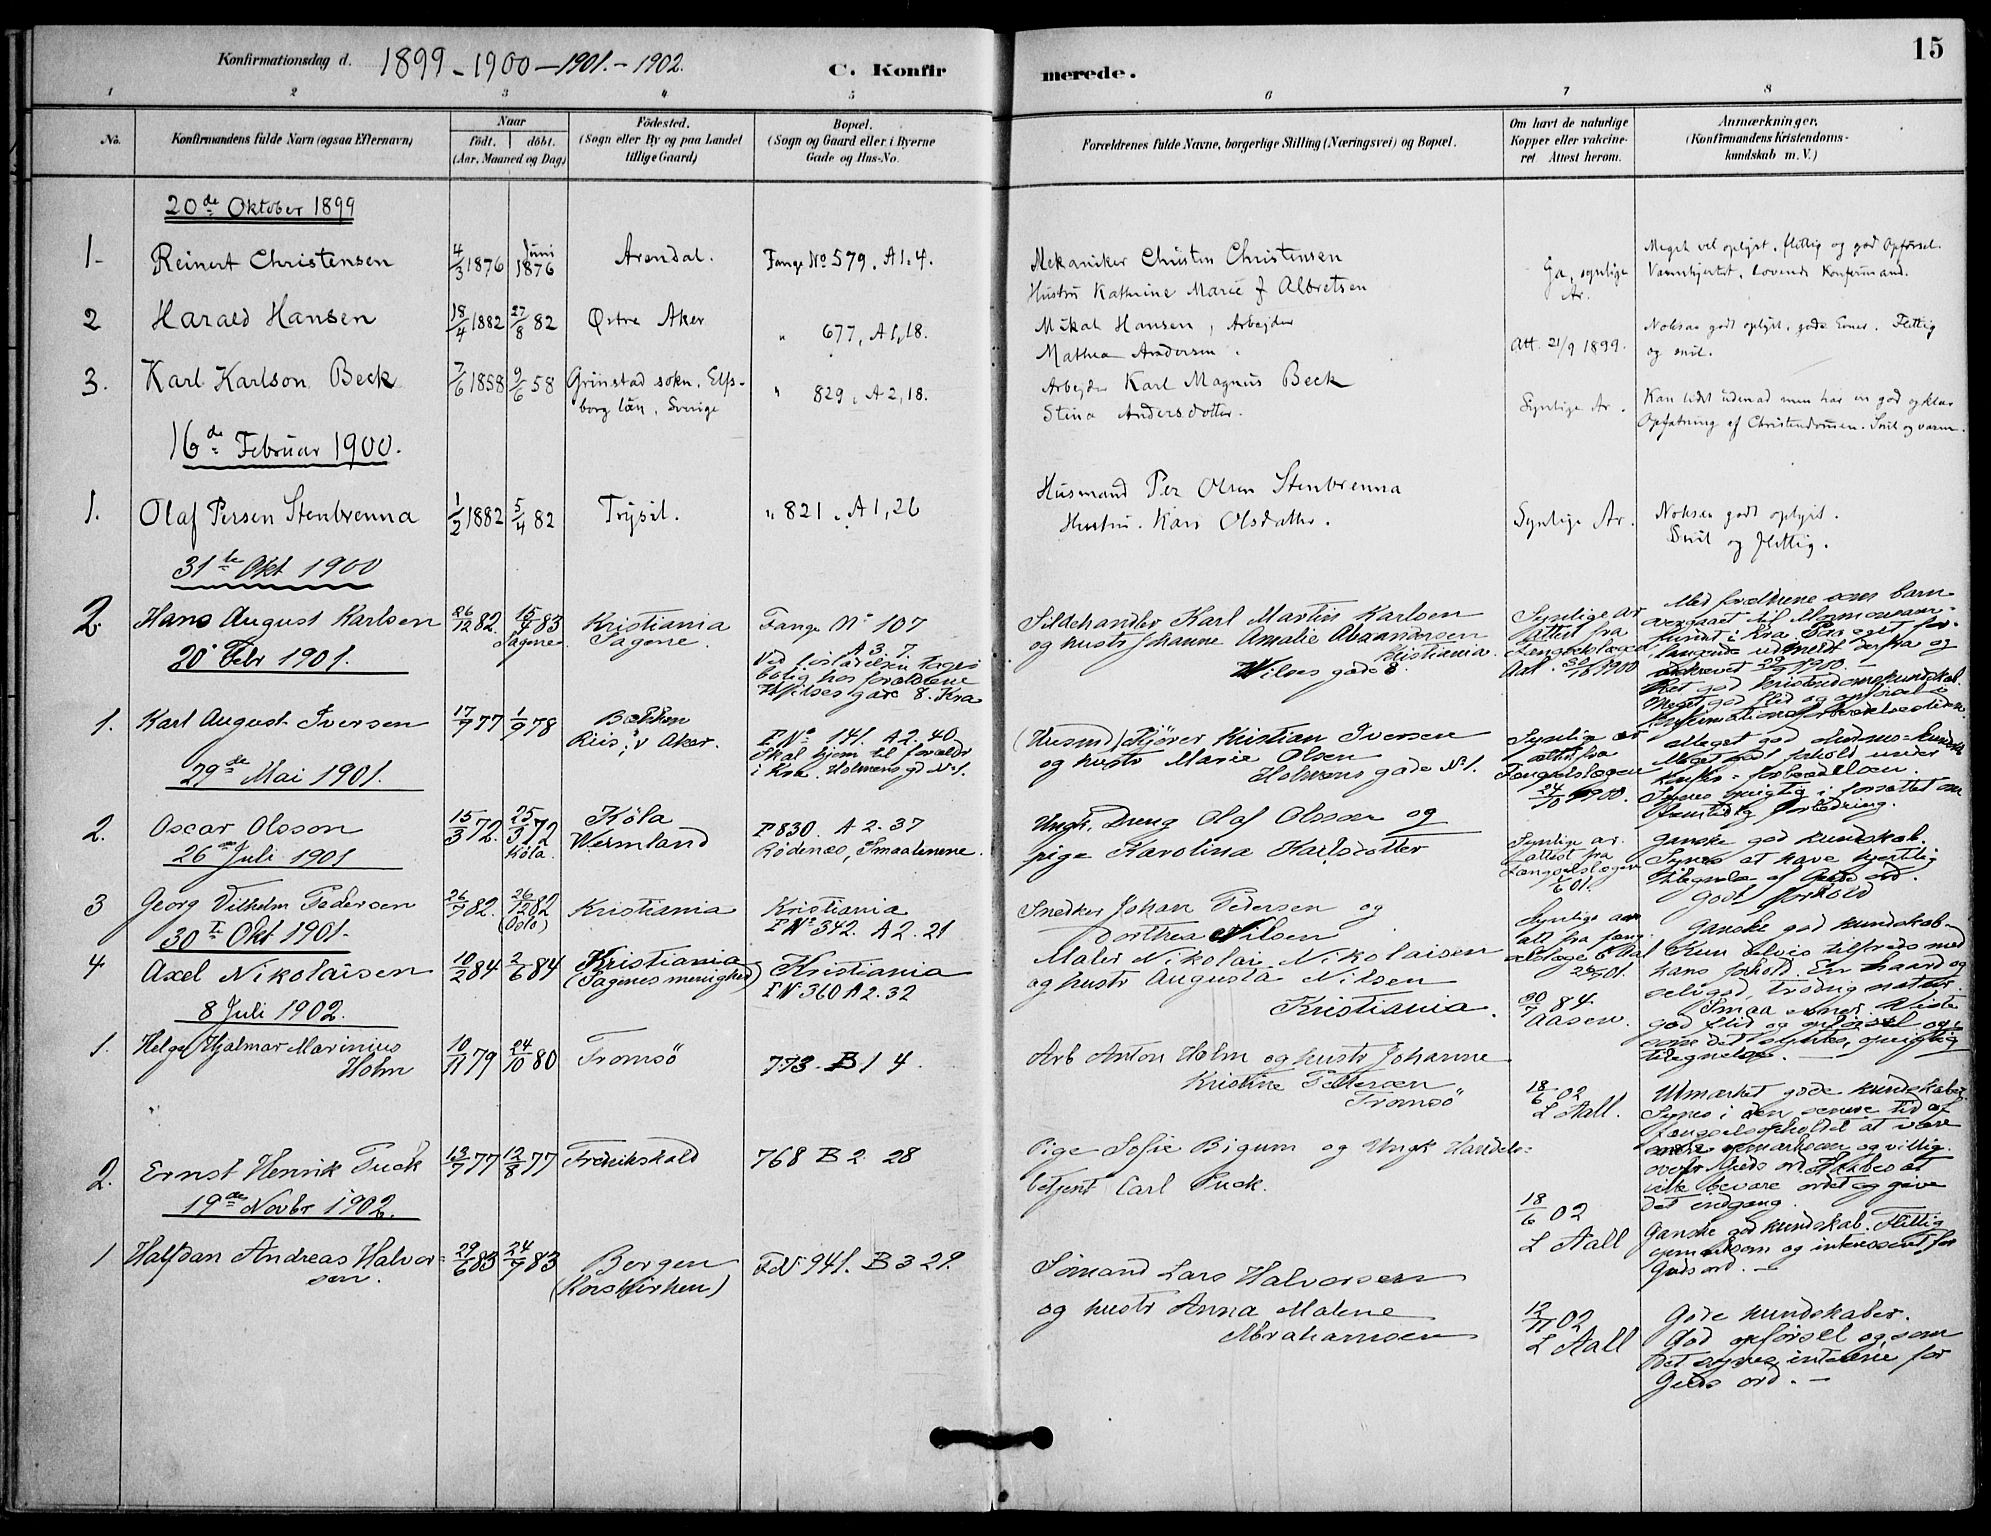 Konfirmationsdag d. 1899 - 1900 - 1901. - 1902.
C. Konfir
merede.
15
1 2 3 4 5 6 7 8
No.
Konfirmandens fulde Navn (ogsaa Efternavn)
Naar
födt. döbt.
(Aar, Maaned og Dag)
Födested.
(Sogn eller By og paa Landet
tillige Gaard)
Bopæl.
(Sogn og Gaard eller i Byerne
Gade og Hus-No.
Forældrenes fulde Navne, borgerlige Stilling (Næringsvei) og Bopæl.
Om havt de naturlige
Kopper eller vakcine-
ret Attest herom.
Anmærkninger.
(Konfirmandens Kristendoms-
kundskab m. V.)
20de Oktober 1899
1. Reinert Christensen 4/3 1876 Juni 1876 Arendal. Fange No 579. A1.4.
Mekaniker Christen Christensen
Hustru Kathrine Marie f Albretsen
Ja, synlige
Ar.
Meget vel oplyst. flittig og god Opførsel.
Varmhjertet, lovende Konfirmand.
2 Harald Hansen 18/4 1882 27/8 82 Østre Aker " 677, A1,18.
Mikal Hansen, Arbejder
Mathea Andersen.
Att. 21/9 1899.
Noksaa godt oplyst, gode Evner. Flittig
og snil.
3. Karl Karlson Beck 7/6 1858 9/6 58 Grinstad sokn, Elfs-
borg län, Sverige
" 829, A2,18.
Arbejder Karl Magnus Beck
Stina Andersdotter.
Synlige Ar.
Kan lidt udenad men har en god og klar
Opfatning af Christendommen. Snil og varm.
16de Februar 1900.
1. Olaf Persen Stenbrenna 1/2 1882 5/4 82 Trysil. " 821. A1,26
Husmand Per Olsen Stenbrenna
Hustru. Kari Olsdatter.
Synlige Ar.
Noksaa godt oplyst.
Snil og flittig.
31te Okt 1900
2. Hans August Karlsen 26/12 82. 15/4 83
Sagene
Kristiania
Sagene.
Fange No 107
A 3. 7.
Ved løsladelsen tages
bolig hos forældrene
Wilses gade 8. Kra
Sildehandler Karl Martin Karlsen
og hustr Johanne Amalie
Kristiania.
Wilses gade 8.
Synlige ar
attest fra
Fængselslægen
Med forældrene som barn
overgaaet til
god kristendomskundskab.
Meget god flid og opførsel i
20 Febr 1901.
1. Karl August Iversen 17/7 77 1/9 78 Bakken
Riis, v Aker.
F No 141. A2. 40
Skal hjem til forældr
i Kra. Holmens gd No 1.
(Husmd) Kjører Kristian Iversen
og hustr Marie Olsen
Holmens gade No 1.
Synlige ar
attst fra
Fængselslægen
24/10 1900.
Meget god
Meget god forhold under
Konfir- forberedelsen.
29de Mai 1901.
2. Oscar Olsson 15/3 72. 25/3 72
Köla.
Köla
Wermland
F 830. A 2. 37
Rødenæs, Smaalenene.
Ungk. Dreng Olaf Olsson og
pige Karolina Karlsdotter
Synlige ar.
attest fra
Fængselslægen
Ganske god kundskab.
Synes at have hjertlig
tilegnelse af Guds ord.
Godt forhold
26 Juli 1901
3 Georg Vilhelm Pedersen 26/7 82. 26/12 82
(Oslo)
Kristiania
Kristiania
F No 342. A 2. 21
Snedker Johan Pedersen og
Dorthea Nilsen
Synlige aar
att fra fæng.
Ganske god kundskab.
Kun delvis tilfreds med
hans forhold. En haard og
30te Okt 1901.
4 Axel Nikolaisen 10/2 84 2/6 84 Kristiania
(Sagenes menighed)
Kristiania
F No 360 A2. 32
Maler Nikolai Nikolaisen
og hustr Augusta Nilsen
Kristiania.
30/7 84.
Aasen.
Smaa evner.
god flid og opførsel og
som det synes, oprigtig
tilegnelse.
8 Juli 1902.
1. Helge Hjalmar Marinius
Holm
10/11 79 24/10 80 Tromsö 773. B 1 4.
Arb Anton Holm og hustr Johanne
Kristine Pettersen
Tromsö
18/6 02
L Aall.
Utmærket gode kundskaber.
Synes i den senere tid af
fængselsopholdet at være
opmærksom og villig
overfr Guds ord. Haabes at
ville bevare ordet og give
det indgang.
2. Ernst Henrik Tuck 13/7 77 12/8 77 Fredrikshald 768 B 2. 28
Pige Sofie Bigum og Ungk Handels-
betjent Carl Tuck.
18/6 02
L Aall
Ganske god kundskab. Flittig
opmærksom og interesseret for
Guds ord. —
19de Novbr 1902.
1 Halfdan Andreas Halvor-
sen.
29/6 83 24/9 83 Bergen
(Korskirken)
F No 941. B 3 29.
Sömand Lars Halvorsen
og hustr Anna Malene
Abrahamsen
12/11 02
L Aall
Gode kundskaber.
God opførsel og, som
det synes, interesse for
Guds ord. —